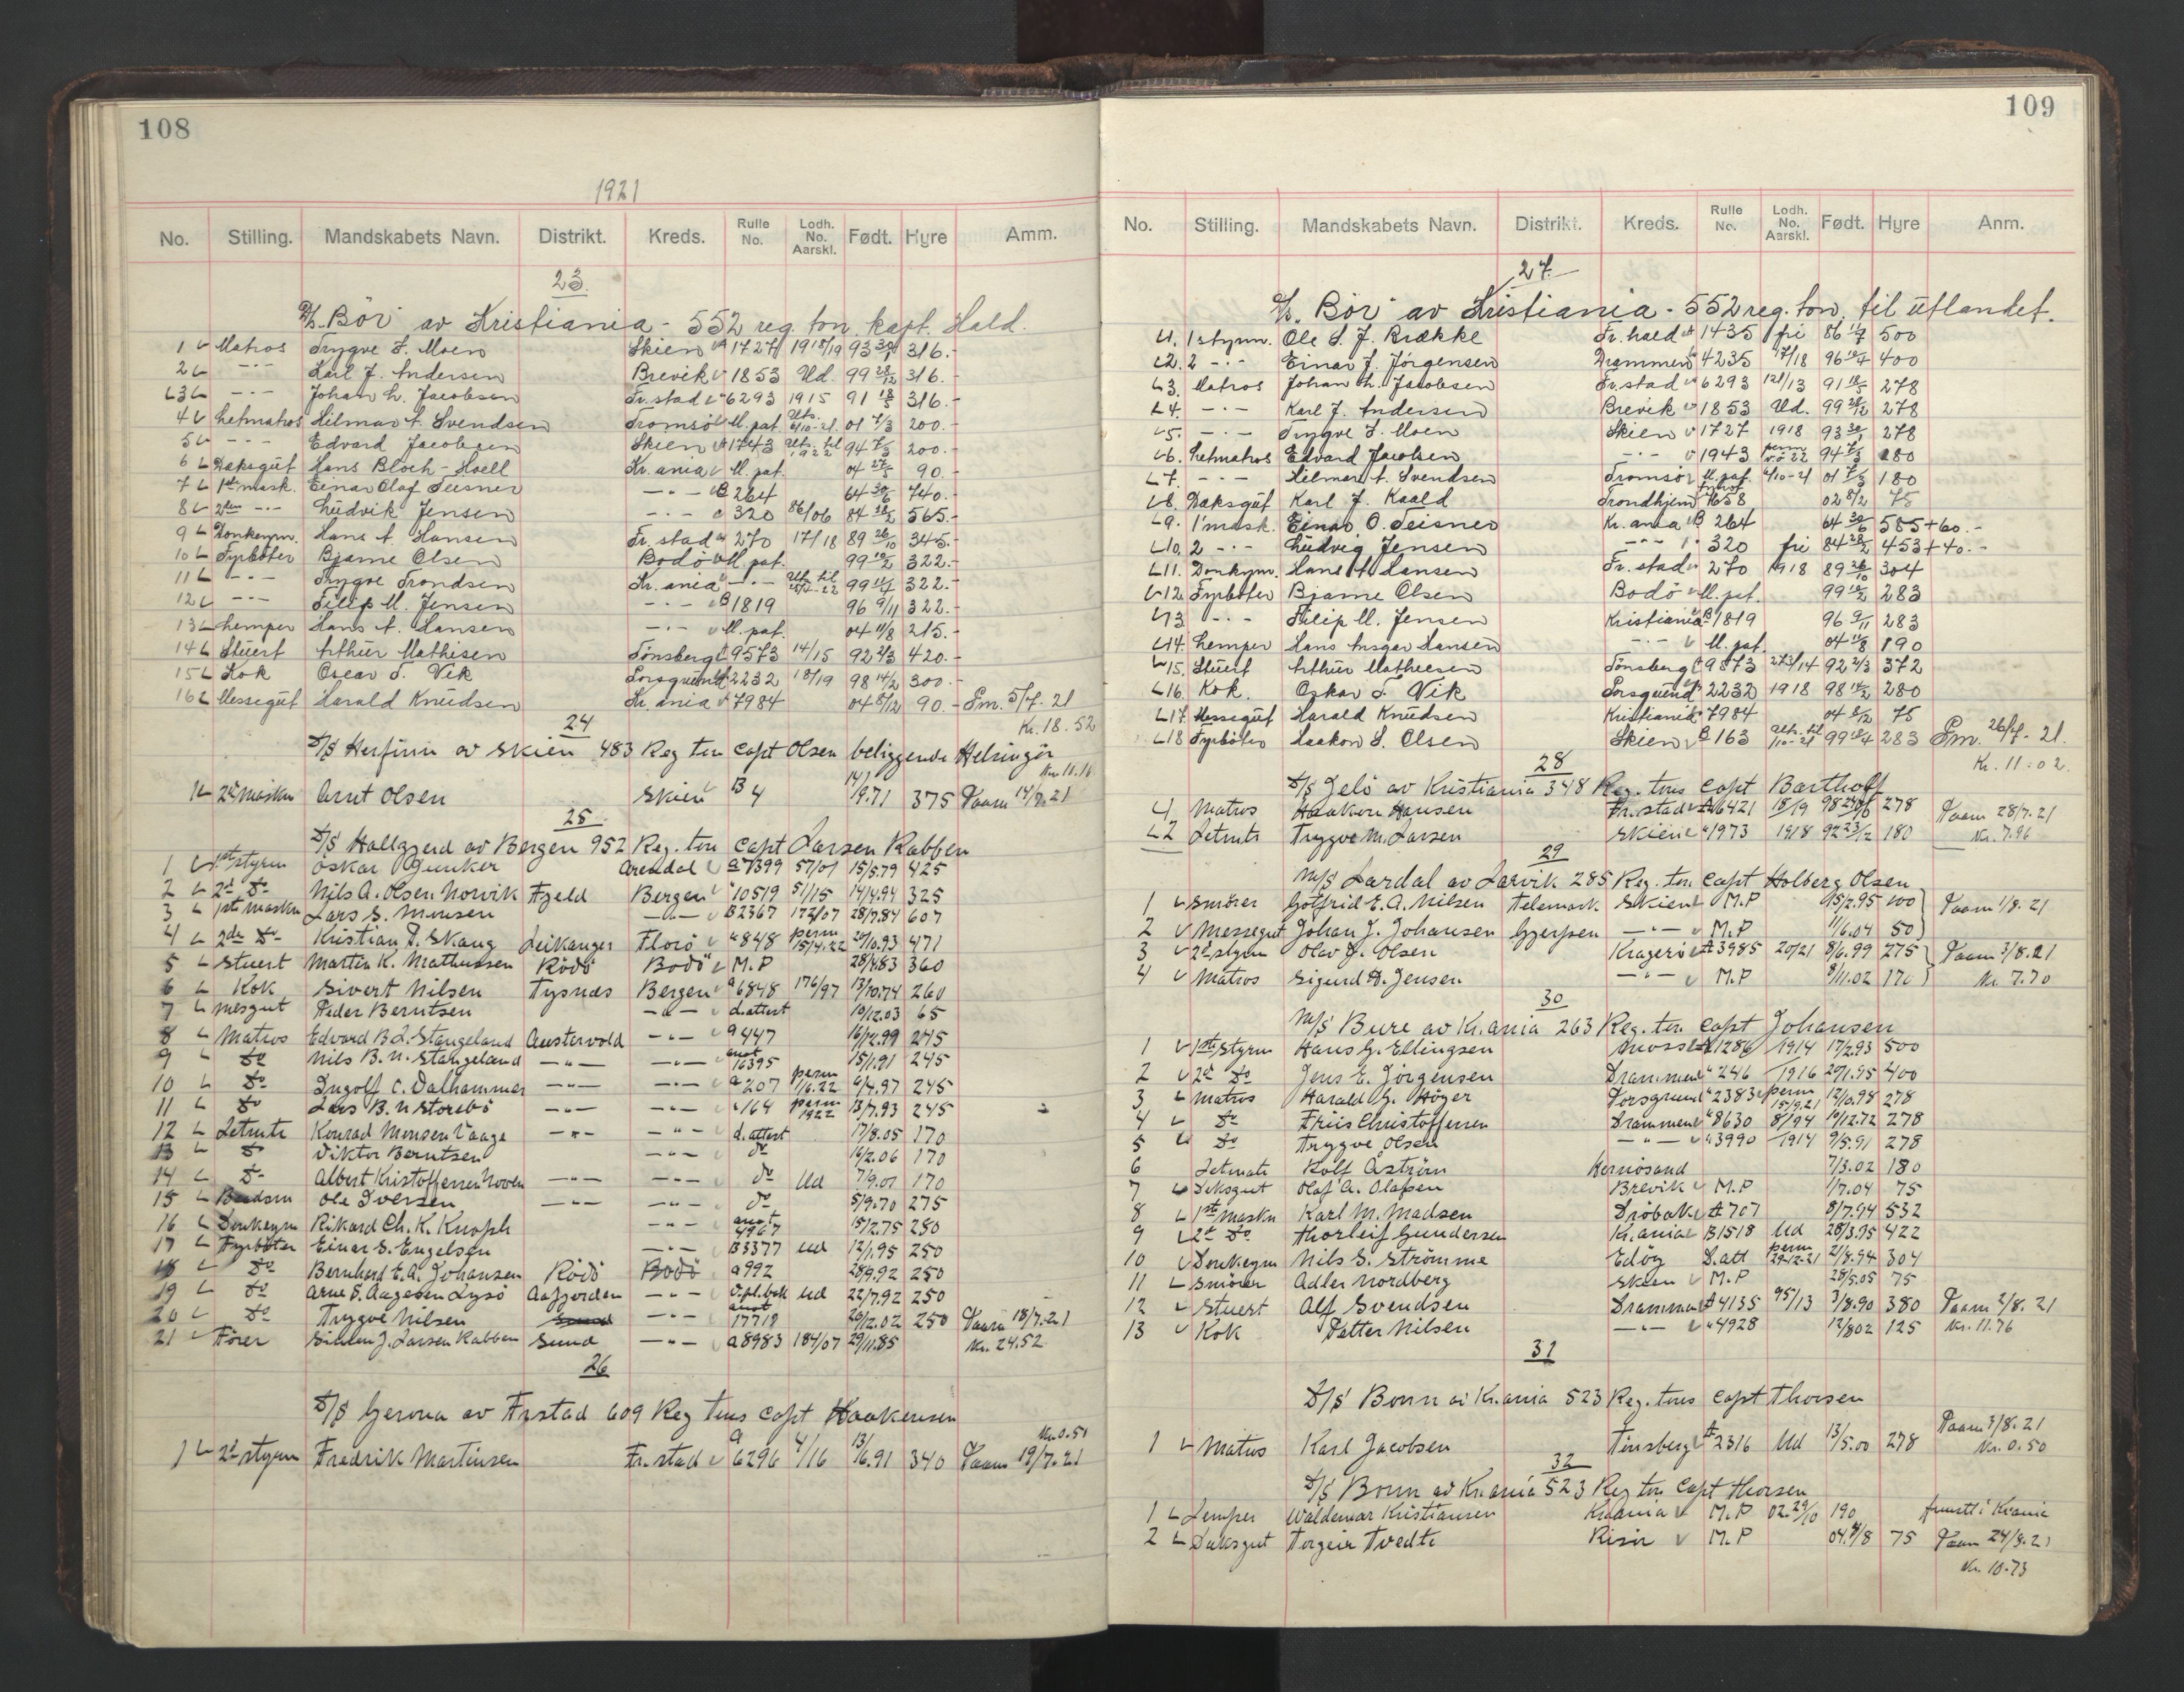 108
1921
No. Stilling. Mandskabets Navn. Distrikt. Kreds. Rulle No. Lodh. No. Aarskl. Født. Hyre Amm.
23.
D/S. Bör av Kristiania - 552 reg. ton. kapt. Hald.
1 Matros Trygve J. Moen Skien A 1727 1918/19 93 30/1 316.-
2 -"- Karl J. Andersen Brevik 1853 Ud. 99 28/12 316.-
3 -"- Johan L. Jacobsen Fr.stad 6293 1915 91 18/5 316.-
4 Letmatros Hilmar A. Svendsen Tromsö M. pat. 1/10-21. 01 7/3 200.-
5 -"- Edvard Jacobsen Skien 1743 Uts. til 1922 94 7/3 200.-
6 Dæksgut Hans Bloch-Hoell Kr.ania M. pat. 04 27/5 90.-
7 1ste mask. Einar Olaf Teisner -"- B 264 64 30/6 740.-
8 2den -"- Ludvik Jensen -"- 320 86/06 84 28/2 565.-
9 Donkeym. Hans A. Hansen Fr.stad 270 17/18 89 26/10 345.-
10 Fyrböter Bjarne Olsen Bodö M. pat. 99 10/2 322.-
11 -"- Trygve Trondsen Kr.ania -"- Uts. til 99 11/4 322.-
12 -"- Filip M. Jensen -"- B 1819 96 9/11 322.-
13 Lemper Hans A. Hansen -"- M. pat. 04 11/8 215.-
14 Stuert Arthur Mathisen Tönsberg 9573 14/15 92 2/3 420.-
15 Kok Oscar T. Vik Porsgrund 2232 18/19 98 14/2 300.-
16 Messegut Harald Knudsen Kr.ania 7984 04 8/12 90.- Pm. 5/7. 21
Kr. 18.52
24
D/S Herfinn av Skien 483 Reg ton Capt Olsen beliggende Helsingör
Kr. 11.11
1 2den Maskn Arnt Olsen Skien B 4 14/9.71 375 Paam 14/7.21
25
D/S Hallgjerd av Bergen 952 Reg. ton Capt Larsen Rabben
1 1ste styrm Oskar Gunker Arendal a 7399 57/01 15/5.79 425
2 2d Do Nils A. Olsen Norvik Fjeld Bergen " 10519 51/15 14/4.94 325
3 1ste Maskn Lars S. Monsen -"- B 2367 172/07 28/7.84 607
4 2de Do Kristian D. Skaug Leikanger Florö " 848 perm 15/4.22 20/10.93 471
5 Stuert Martin K. Mathussen Rödö Bodö M.P 28/4.83 360
6 Kok Sivert Nilsen Tysnæs Bergen a 6848 176/97 13/10.74 260
7 Mesgut Peder Berntsen -"- d.attest 10/12.03 65
8 Matros Edvard B. L. Stangeland Austervold -"- a 447 16/12.99 245
9 Do Nils B. N. Stangeland -"- -"- anot 16395 15/1.91 245
10 Do Ingolf C. Dalhammer -"- -"- a 207 perm 1/6.22 6/4.97 245
11 Do Lars B. N Storebö -"- -"- " 164 perm 1922 13/7.93 245
12 Letmts Konrad Monsen Vaage -"- -"- d.attest 17/8.05 170
13 Do Viktor Berntsen -"- do 16/2.06 170
14 Do Albert Kristoffersen Noven -"- -"- do Ud 7/9.01 170
15 Baadsm Ole Iversen -"- -"- do 5/9.70 275
16 Donkeym Rikard Ch. K. Knoph -"- anot 4967 15/2.75 250
17 Fyrböter Einar S. Engelsen -"- B 3377 Ud 12/1.95 250
18 Do Bernhard E. A. Johansen Rödö Bodö a 992 28/9.92 250
19 Do Arne T. Aagesen Lysö Aafjorden -"- Ud 22/7.92 250
20 Do Trygve Nilsen Sund -"- anot 17718 20/12.02 250 Paam 18/7.21
21 Förer Simon J. Larsen Rabben Sund -"- a 8983 184/07 29/11.85 Kr. 24.52
26
D/S Gerona av Frstad 609 Reg Tons Capt Haakensen
Kr. 0.51
1 2d styrm Fredrik Martinsen Fr.stad a 6296 4/16 13/6.91 340 Paam 19/7.21
109
No. Stilling. Mandskabets Navn. Distrikt. Kreds. Rulle No. Lodh. No. Aarskl. Født. Hyre Anm.
27.
D/S. Bör av Kristiania - 552 reg. ton. til utlandet.
1. 1 styrm. Ole S. J. Brække Fr.hald A 1435 fri 86 11/7 500
2. 2 -"- Einar J. Jörgensen Drammen 4235 17/18 96 12/4 400
3. Matros Johan L. Jacobsen Fr.stad 6293 121/13 91 18/5 278
4. -"- Karl J. Andersen Brevik 1853 Ud. 99 28/12 278
5. -"- Trygve J. Moen Skien 1727 1918 93 30/1 278
6. Letmatros Edvard Jacobsen -"- 1943 perm 94 7/3 180
7. -"- Hilmar A. Svendsen Tromsö M. pat. 1/10-21 01 7/3 180
8. Dæksgut Karl J. Kaald Trondhjem 7658 02 8/2 75
9. 1 mask. Einar O. Teisner Kr.ania B 264 64 30/6 585+60.-
10. 2 -"- Ludvig Jensen -"- 320 fri 84 28/2 453+40.-
11. Donkym. Hans A. Hansen Fr.stad 270 1918 89 26/10 304
12. Fyrböter Bjarne Olsen Bodö M. pat. 99 10/2 283
13 -"- Filip M. Jensen Kristiania B 1819 96 9/11 283
14. Lemper Hans Ansgar Hansen -"- M. pat. 04 11/8 190
15. Stuert Arthur Mathiesen Tönsberg 9573 273/14 92 2/3 372
16. Kok. Oskar T. Vik Porsgrund 2232 1918 98 14/2 280
17. Messegut Harald Knudsen Kristiania 7984 04 8/12 75
18 Fyrböter Haakon S. Olsen Skien B 163 Uts. til 1/10-21 99 18/4 283 Pm. 26/7-21.
Kr. 11:02.
28
D/S Jelö av Kristiania 348 Reg. tons Capt Bartholf
1 Matros Haakon Hansen Fr.stad A 6421 18/9 98 278 Paam 28/7.21
2 Letmts Trygve M. Larsen Skien " 1973 1918 92 23/12 180 Kr. 7.96
29
M/S Lardal av Larvik 285 Reg. ton Capt Holberg Olsen
1 Smörer Gotfrid E. A. Nilsen Telemark Skien M.P 15/2.95 100 Paam 1/8. 21
2 Messegut Johan J. Johansen Gjerpen -"- M.P 11/6.04 50
3 2d styrm Olav J. Olsen Kragerö A 3985 20/21 8/6.99 275 Paam 3/8.21
4 Matros Sigurd A. Jensen -"- M.P 8/11.02 170 Kr. 7.70
30
M/S Bure av Kr.ania 263 Reg. ton Capt Johansen
1 1ste Styrm Hans G. Ellingsen Moss A 1286 1914 17/2.93 500
2 2d Do Jens E. Jörgensen Drammen " 246 1916 20/1.95 400
3 Matros Harald G. Höyer Porsgrund " 2383 perm 15/9.21 12/10.98 278
4 Do Friis Christoffersen Drammen " 8630 8/94 10/12.72 278
5 Do Trygve Olsen -"- " 3990 1914 9/5.91 278
6 Letmats Rolf Åström Hernösand 7/3.02 180
7 Deksgut Olaf A. Olafsen Brevik M.P 1/7.04 75
8 1ste Maskn Karl M. Madsen Dröbak A 707 8/7.94 532
9 2d Do Thorleif Gundersen Kr.ania B 1518 Ud 28/3.95 422
10 Donkeym Nils S. Strömme Edöy D.att perm 29-12-21 21/8.94 304
11 Smörer Adler Nordberg Skien M.P 28/5.05 75
12 Stuert Alf Svendsen Drammen A 4135 95/13 3/8.90 380 Paam 2/8. 21
13 Kok Petter Nilsen -"- " 4928 12/8 02 125 Kr. 11.76
31
D/S Bonn av Kr.ania 523 Reg. tons Capt Thorsen
Paam 3/8. 21
1 Matros Karl Jacobsen Tönsberg A 2316 Ud 13/5.00 278 Kr. 0.50
32
D/S Bonn av Kr.ania 523 Reg ton Capt Thorsen
1 Lemper Waldemar Kristiansen Kr.ania M.P 02. 29/10 190
2 Deksgut Torgeir Tvedte Risör M.P 04. 4/8 75 Paam 24/8.21
Kr. 10.73